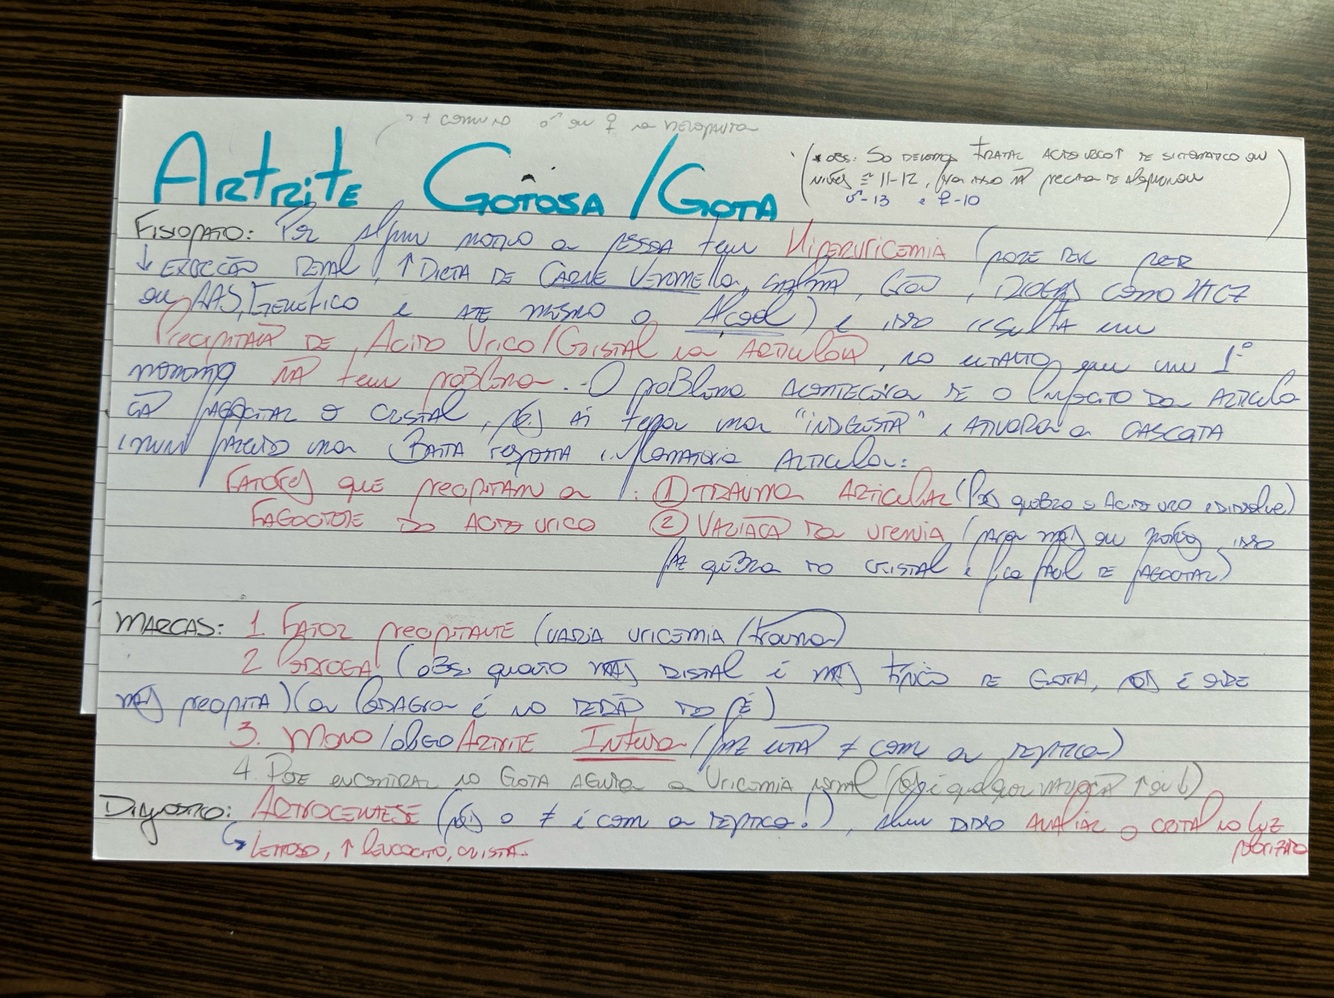 + comum ♂ ou ♀ na menopausa
Artrite Gotosa / Gota
(* obs: Só devemos tratar ácido úrico↑ se sintomático ou
níveis ≅ 11-12,
♂-13 e ♀-10
Fisiopato: Por algum motivo a pessoa tem Hiperuricemia (pode ser por
↓ excreção renal, ↑ Dieta de Carne Vermelha, salmão, grão, drogas como HTCZ
ou AAS, Genético e até mesmo o Álcool) e isso resulta em
Precipitação de Ácido Úrico/Cristal na Articulação, no entanto em um 1º
momento não tem problema. O problema acontecerá se o linfócito da articula
ção fagocitar o cristal, pois aí terá uma "indigestão" e ativará a cascata
imun fazendo uma Baita resposta inflamatória Articular:
Fatores que precipitam a : ① Trauma Articular (Pois quebra o Ácido úrico e dissolve)
Fagocitose do Ácido úrico ② Variação da uremia (para mais ou menos isso
faz quebra do cristal e fica fácil de fagocitar)
Marcas: 1. Fator precipitante (varia uricemia / trauma)
2 Podagra (obs: quanto mais distal é mais típico de Gota, pois é onde
mais precipita) (a Podagra é no dedão do pé)
3. Mono/oligoArtrite Intensa (faz então ≠ com a séptica)
4. Pode encontrar na Gota Aguda a Uricemia normal (pois é qualquer variação ↑ ou ↓)
Diagnóstico: Artrocentese (pois o ≠ é com a séptica!), além disso avaliar o cristal na luz
polarizada
↳ Leitoso, ↑ leucócito, crista.